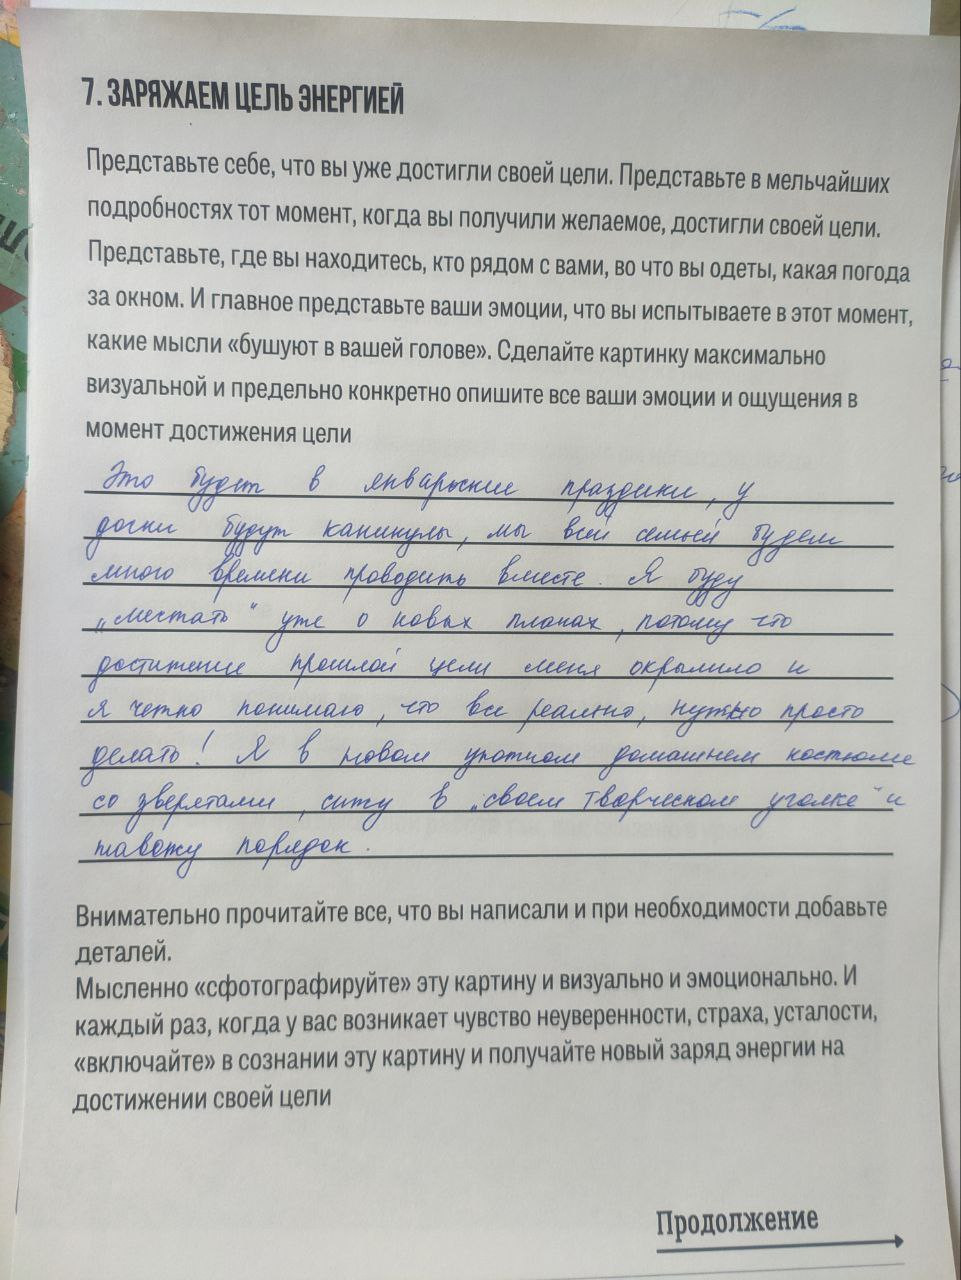 7. ЗАРЯЖАЕМ ЦЕЛЬ ЭНЕРГИЕЙ
Представьте себе, что вы уже достигли своей цели. Представьте в мельчайших
подробностях тот момент, когда вы получили желаемое, достигли своей цели.
Представьте, где вы находитесь, кто рядом с вами, во что вы одеты, какая погода
за окном. И главное представьте ваши эмоции, что вы испытываете в этот момент,
какие мысли «бушуют в вашей голове». Сделайте картинку максимально
визуальной и предельно конкретно опишите все ваши эмоции и ощущения в
момент достижения цели
Это будет в январские праздники, у
дочки будут каникулы, мы всей семьей будем
много времени проводить вместе. Я буду
„мечтать" уже о новых планах, потому что
достижение прошлой цели меня окрылило и
я четко понимаю, что все реально, нужно просто
делать! Я в новом уютном домашнем костюме
со зверятами, сижу в „своем творческом уголке" и
навожу порядок.
Внимательно прочитайте все, что вы написали и при необходимости добавьте
деталей.
Мысленно «сфотографируйте» эту картину и визуально и эмоционально. И
каждый раз, когда у вас возникает чувство неуверенности, страха, усталости,
«включайте» в сознании эту картину и получайте новый заряд энергии на
достижении своей цели
Продолжение